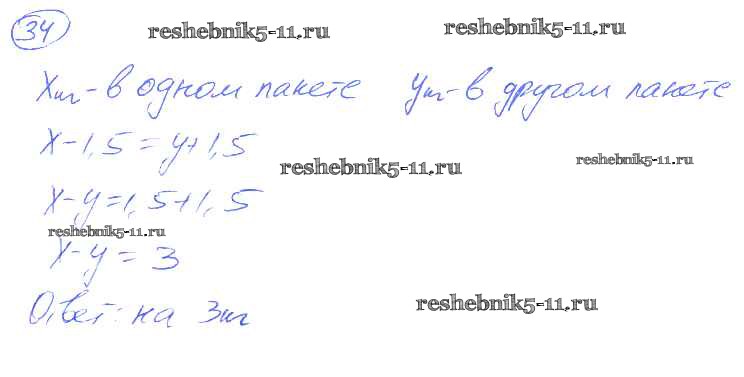 34
reshebnik5-11.ru reshebnik5-11.ru
Xкг - в одном пакете Yкг - в другом пакете
X-1,5=y+1,5
reshebnik5-11.ru reshebnik5-11.ru
X-y=1,5+1,5
reshebnik5-11.ru
X-y=3
Ответ: на 3кг
reshebnik5-11.ru